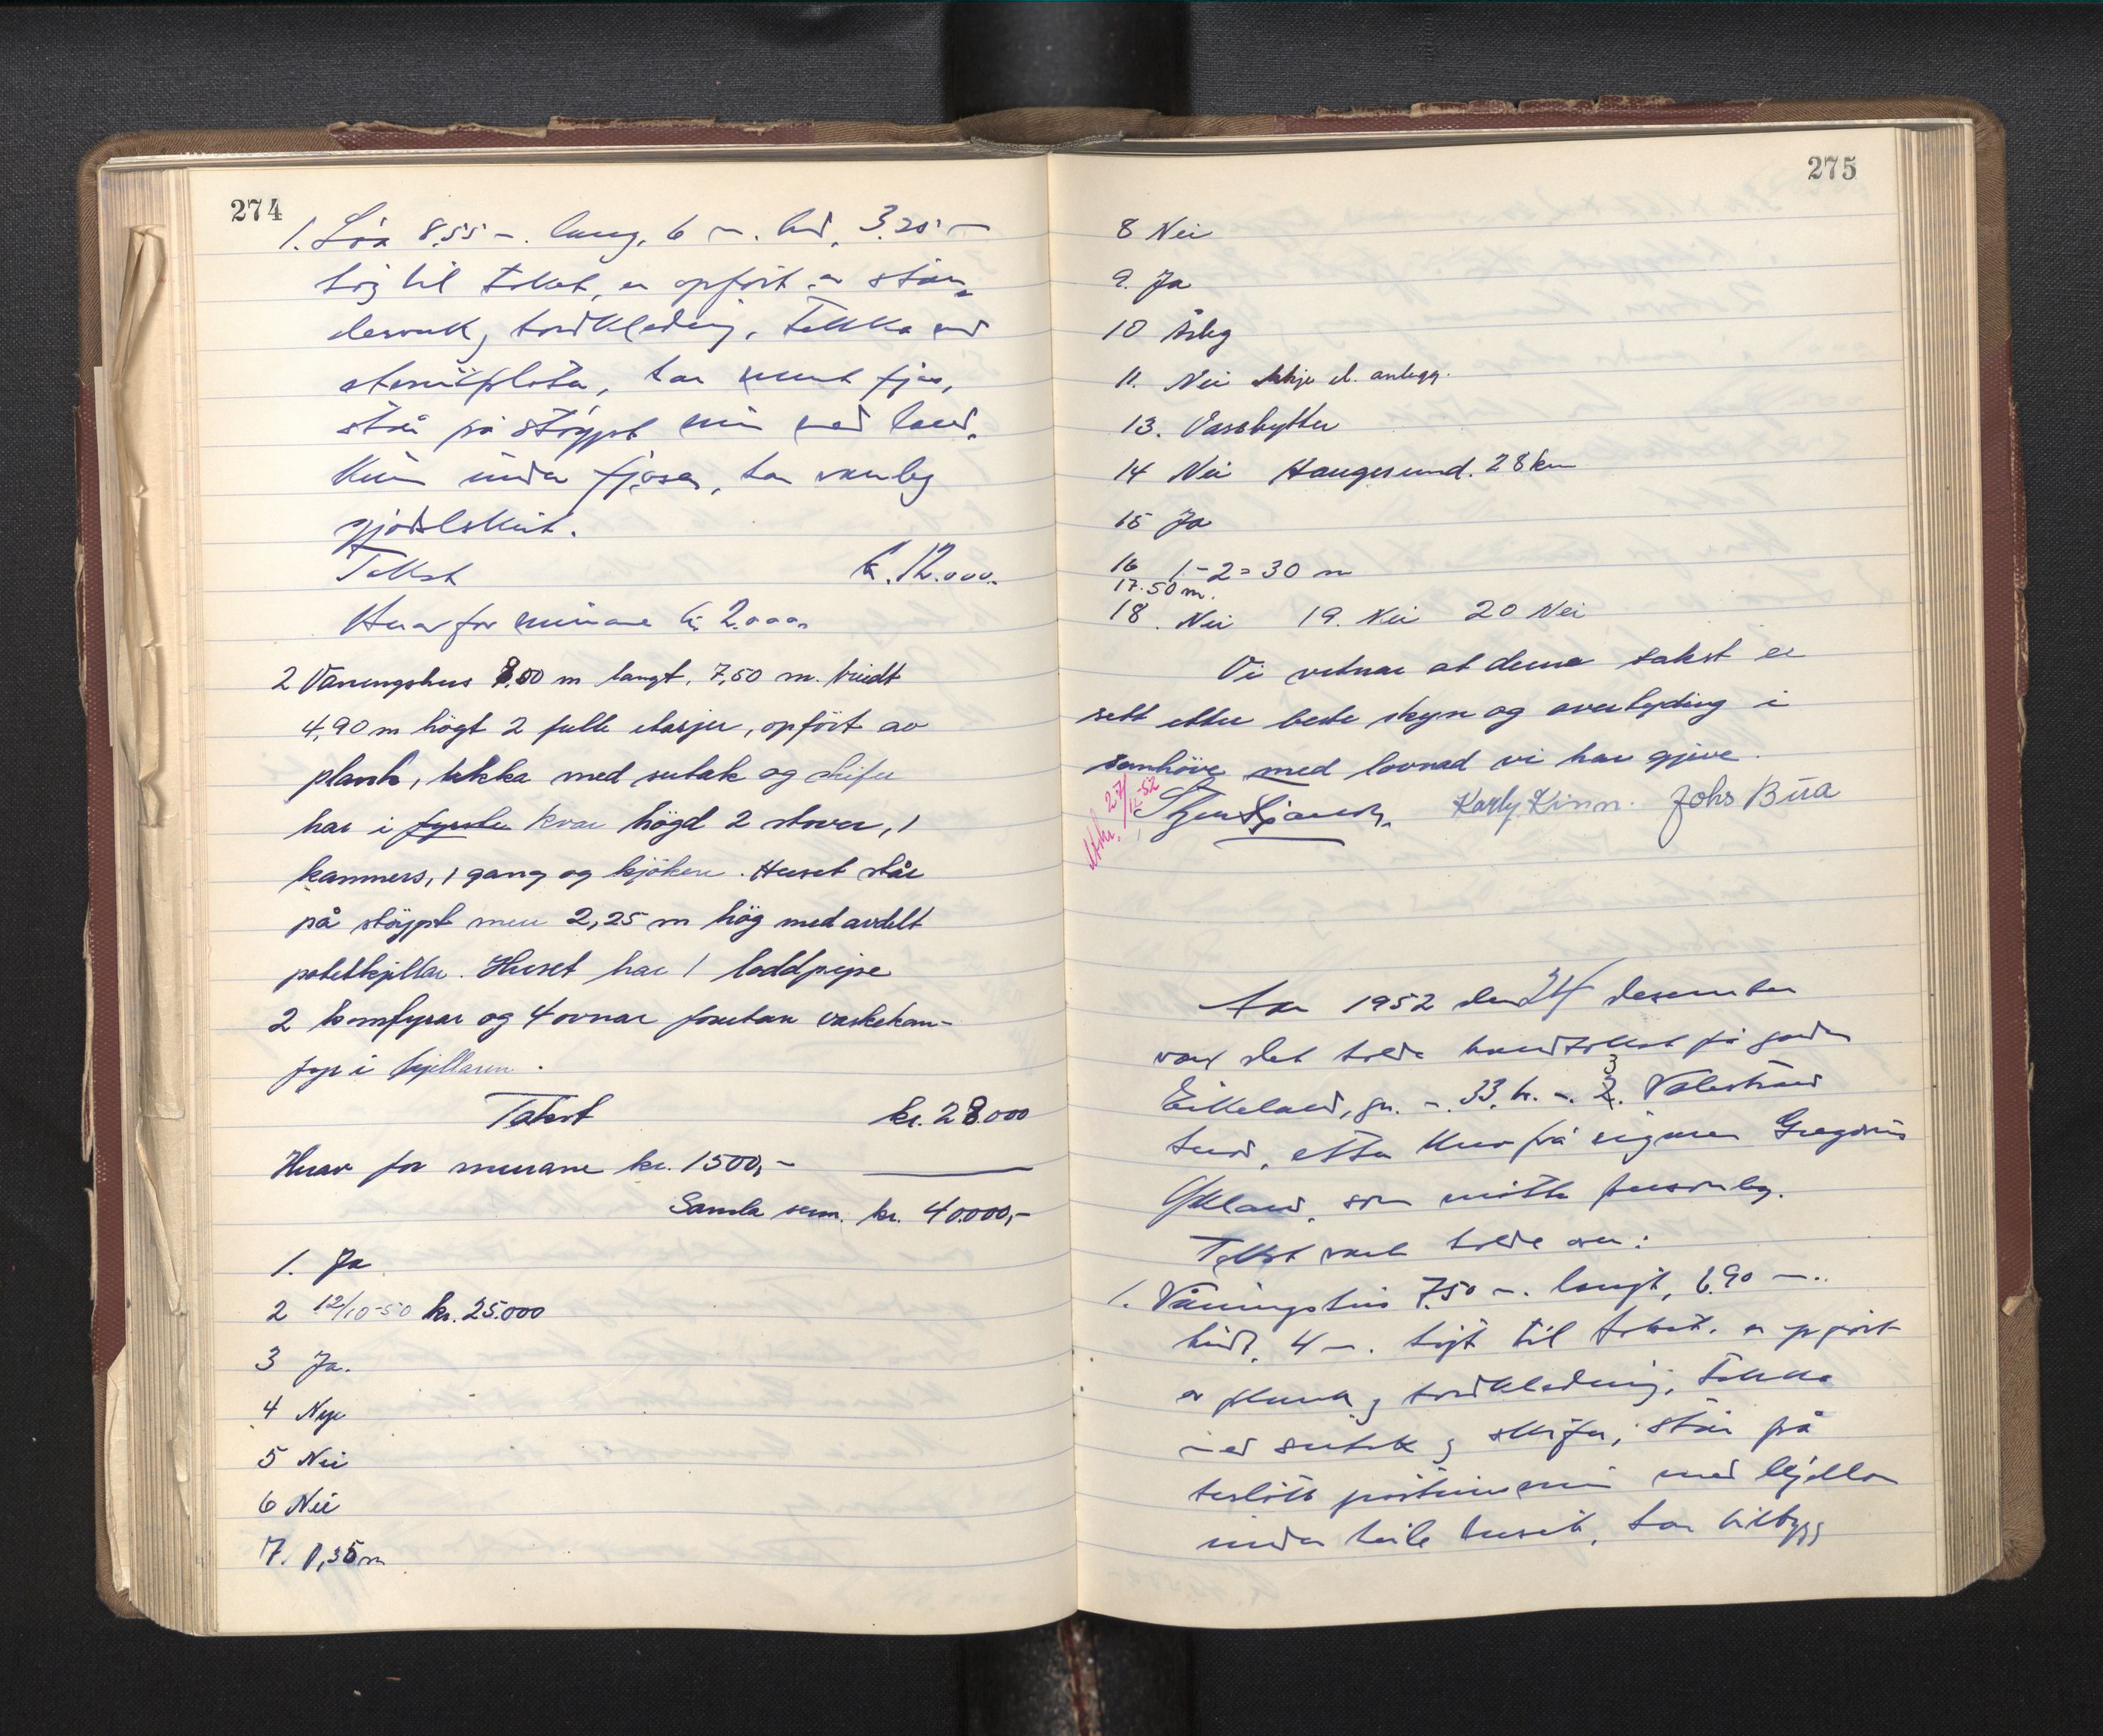 274
1. Löa 8.55 m. lang, 6 m. br., 3.20 m
høg til taket, er opført av stan-
derverk og bordkledning. Tekka med
eternitplater, har murt fjøs,
står på støypt mur med land-
kum under fjøset, har vanleg
gjødselskut.
Takst kr. 12.000.-
Herav for murane kr. 2.000.-
2 Våningshus 8,00 m langt, 7,50 m. breidt
4,90 m högt 2 fulle etasjer, opfört av
plank, tekka med sutak og skifer
har i fyrste kvar högd 2 stover, 1
kammers, 1 gang og kjöken. Huset står
på stöypt mur 2,25 m hög med avdelt
potetkjellar. Huset har 1 loddpipe
2 komfyrar og 4 ovnar foruten vaskekom-
fyr i kjellaren.
Takst kr. 28.000
Herav for murane kr. 1500,-
Samla sum. kr. 40.000,-
1. Ja
2 12/10-50 kr. 25.000
3 Ja.
4 Nye
5 Nei
6 Nei
7. 1,35 m
275
8 Nei
9. Ja
10 Årleg
11. Nei ikkje el. anlegg.
13. Vassbytter
14 Nei Haugesund. 28 km
15 Ja
16 1-2 = 30 m
17. 50 m.
18. Nei 19. Nei 20 Nei
Vi vitnar at denne takst er
sett etter beste skyn og overtyding i
samhöve med lovnad vi har gjeve.
27/12-52
Karly Kinn. Johs Bua
Aar 1952 den 24 desember
vart det halde branntakst på garden
Eikeland, gn. nr. 33, br. nr. 2. 3 Valestrand
herad, etter krav frå eigaren Gregorius
Økland, som møtte personleg.
Takst vart halde over:
1. Våningshus 7.50 m. langt, 6.90 m.
breidt, 4 m. høgt til taket, er oppført
av plank og bordkledning, Tekka
med sutak og skifer, står på
mur med kjellar
under heile huset, har tilbygg